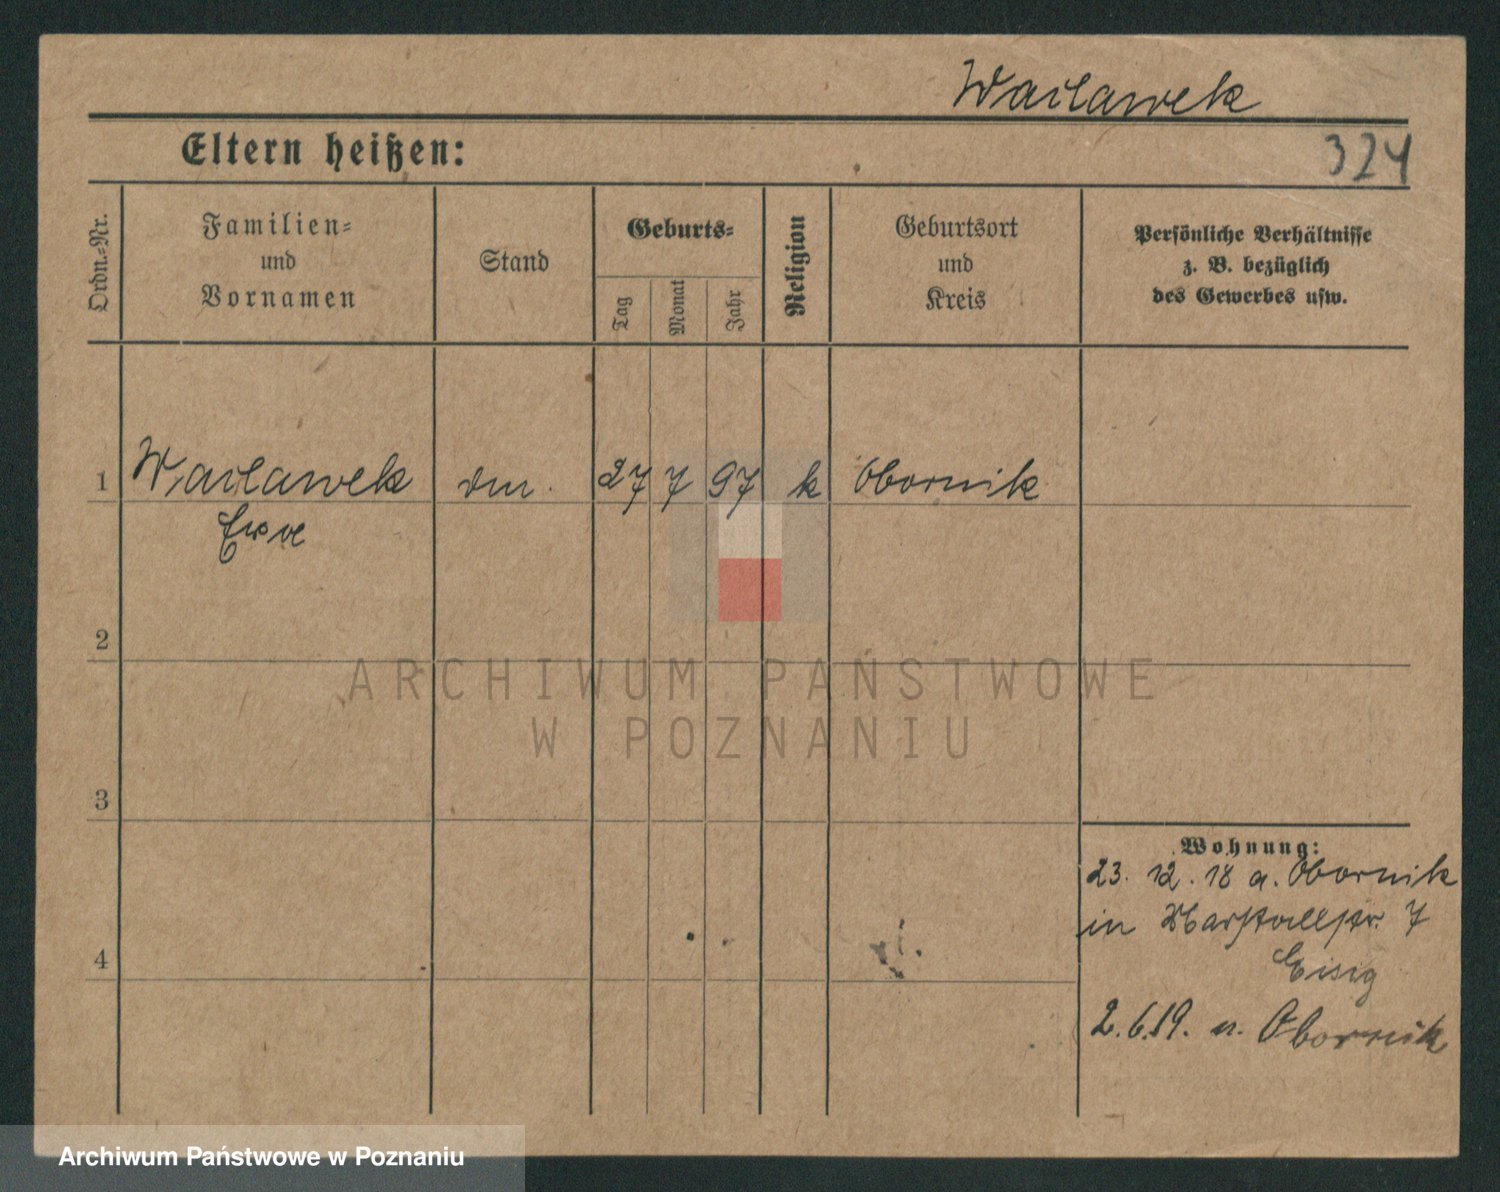 Wacławek
324
Eltern heißen:
Ordn.-Nr.
Familien-
und
Vornamen
Stand
Geburts-
Tag
Monat
Jahr
Religion
Geburtsort
und
Kreis
Persönliche Verhältnisse
z. B. bezüglich
des Gewerbes usw.
1 Wacławek 27 7 97 k Obornik
Ewa
2
3
4
Wohnung:
23. 12. 18 a. Obornik
in Marstallstr. 7
Eisig
2. 6. 19. n. Obornik
ARCHIWUM PAŃSTWOWE
W POZNANIU
Archiwum Państwowe w Poznaniu